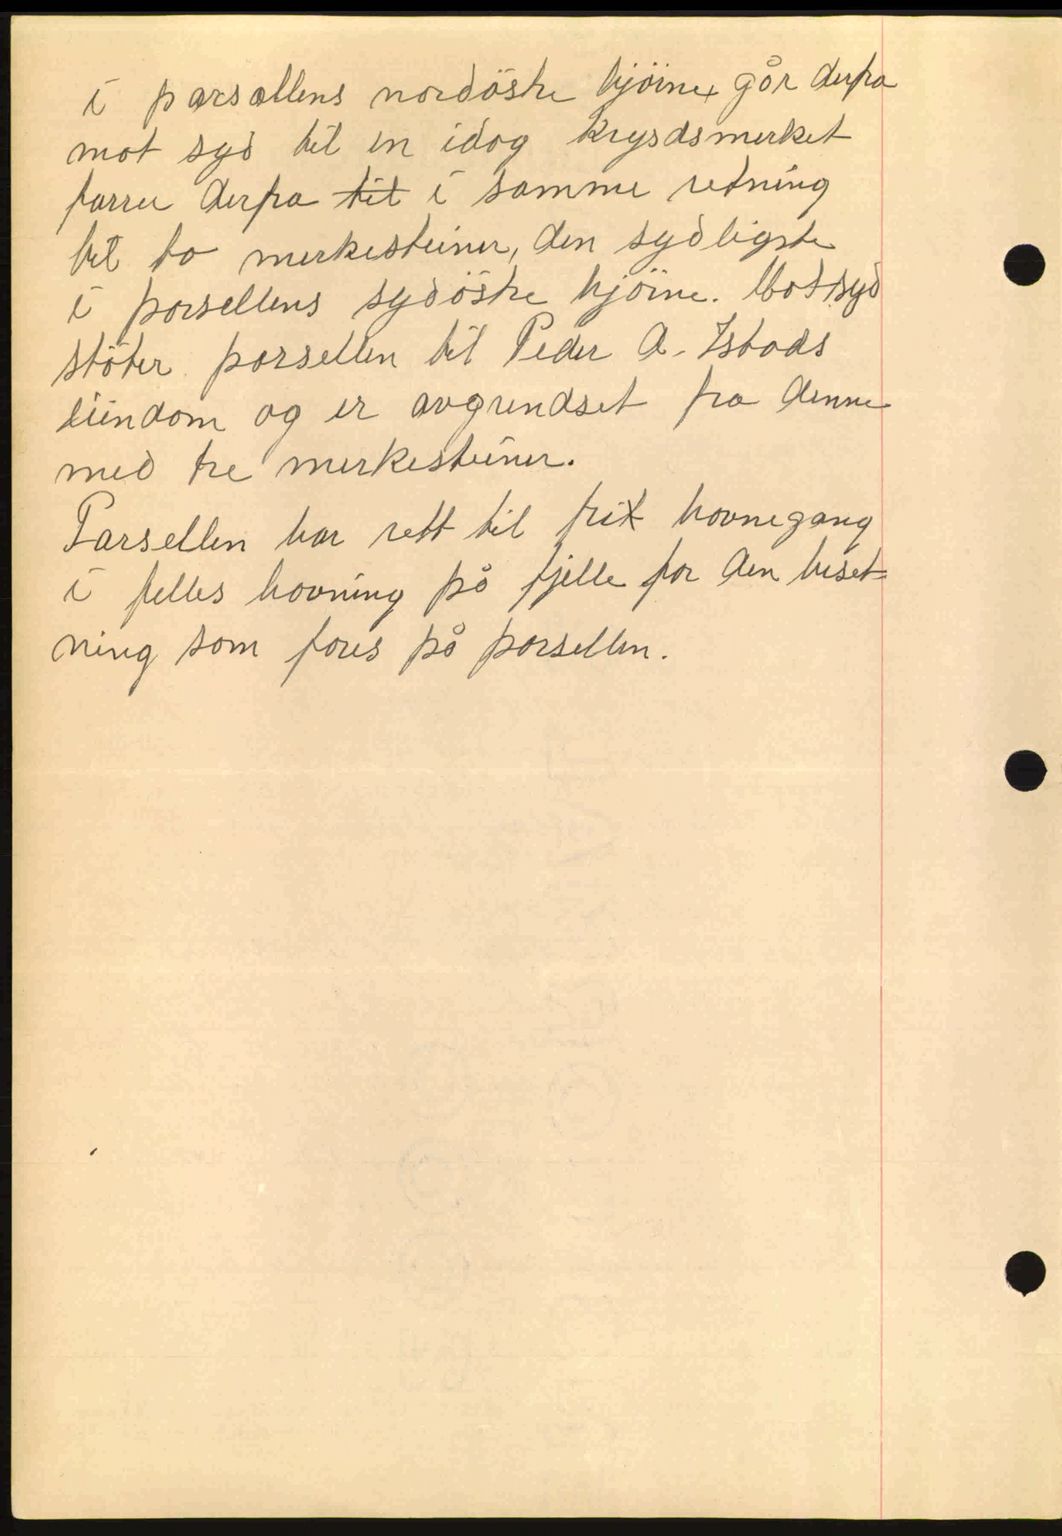 i parsellens nordöstre hjörne, går derfra
mot syd til en idag krysdsmerket
farru derfra til i samme retning
til to merkesteiner, den sydligste
i parsellens sydöstre hjörne. Mot syd
stöter parsellen til Peder A. Istads
eiendom og er avgrendset fra denne
med tre merkesteiner.
Parsellen har rett til frit havnegang
i felles havning på fjelle for den beset-
ning som fores på parsellen.